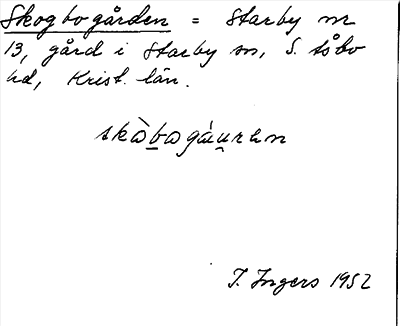 Skogbogården = Starby nr
13, gård i Starby sn, S. Åsbo
hd, Krist. län.
skòbogáu̯rən
I. Ingers 1952